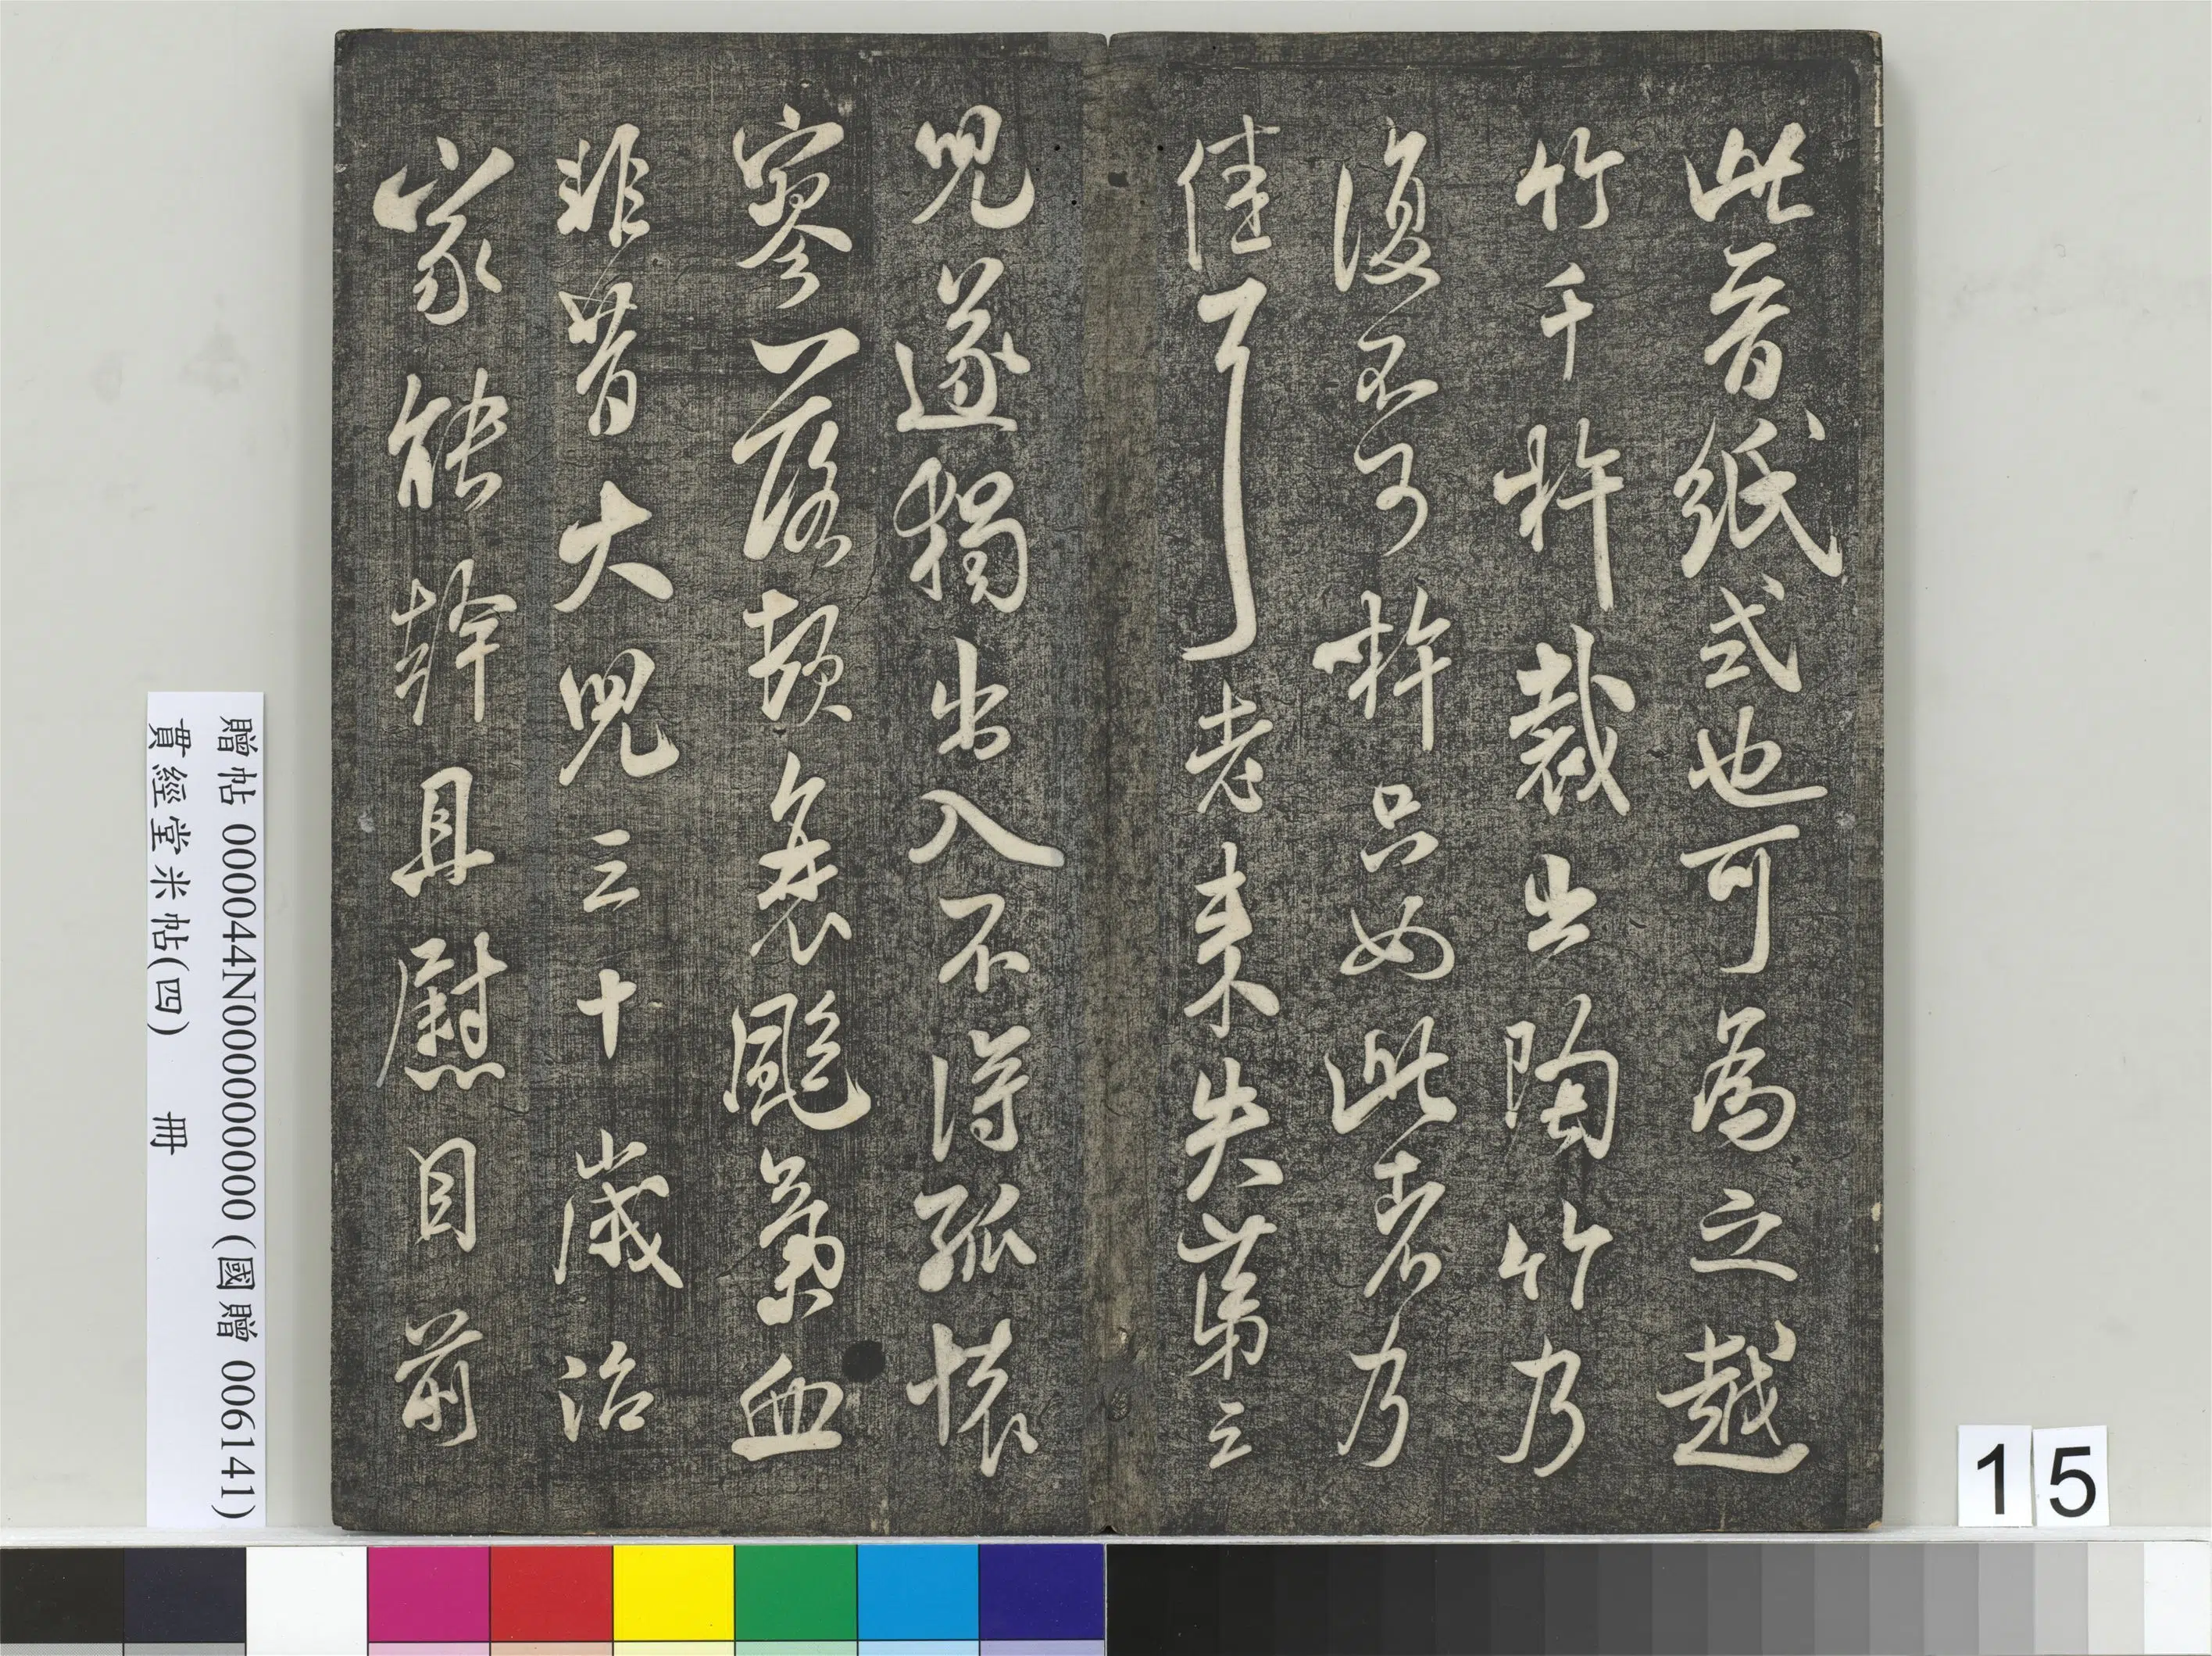 此晉紙式也可為之越
竹千杵裁出陶竹乃
復不可杵只如此者乃
佳耳老來失第三
兒遂獨出入不得孤懷
寥落頓衰颮氣血
非昔大兒三十歲治
家能幹且慰目前
贈帖 000044N000000000 (國贈 006141)
貫經堂米帖(四) 冊
15